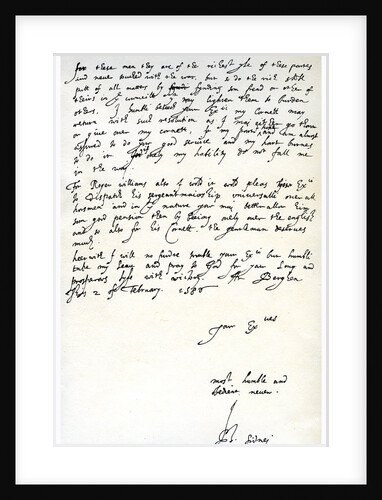 for these men they are of the richest of these partes
and never trobled with the war, but so the rich still
putt of all maters by finding som frend or other of
theirs in comissi and so lighten them to burden
others. I humbli beseech your Ex cie my Cornett may
return with such resolution as I mai either go thorow
or give over my cornett. I my part am almost
to do good service and my hart burnes
to do it my hability do not faill me
in the way.
For Roger williams also I wold it wold pleas Ex cie
to dispatch his sergeantmaiorship universalli over all
horsmen and in nature your mai better allow him
som good pension then by being onely over the english
and so also for his Cornett. the gentleman deserves
much.
heerwith I will no furdre trouble your Ex cie but humbli
take my leav and prai to God for your long and
prosperous lyfe with victory. At Berghen
this 2 of February. 1586
Your Ex cies
most humble and
obedient
Ph. Sidnei